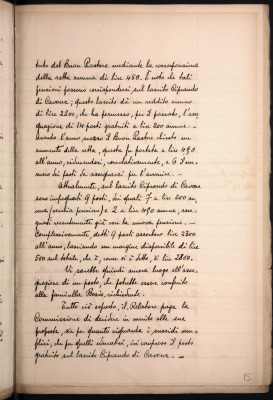 tuto del Buon Pastore mediante la corresponsione
della retta annua di lire 480. È noto che tali
pensioni possono corrispondersi sul lascito Ciprando
di Cavour; questo lascito dà un reddito annuo
di lire 2800, che ha permesso, pel passato, l'as=
segnazione di 14 posti gratuiti a lire 200 annue. -
Avendo l'anno scorso il Buon Pastore chiesto un
aumento della retta, questa fu portata a lire 490
all'anno, riducendosi, correlativamente, a 6 il nu=
mero dei posti da assegnarsi per l'avvenire. -
Attualmente, sul lascito Ciprando di Cavour
sono impegnati 9 posti, dei quali 7 a lire 200 an=
nue (vecchia pensione) e 2 a lire 490 annue, asse=
gnati recentemente già con la nuova pensione. -
Complessivamente, detti 9 posti assorbono lire 2300
all'anno, lasciando un margine disponibile di lire
500 sul totale, che è, come si è detto, di lire 2800.
Vi sarebbe quindi ancora luogo all'asse=
gnazione di un posto, che potrebbe essere conferito
alla fanciulla Bosio, richiedente. -
Tutto ciò esposto, il Relatore prega la
Commissione di decidere in merito alle sue
proposte, sia per quanto riguarda i sussidi sem=
plici, che per quelli educativi, ivi compreso il posto
gratuito sul lascito Ciprando di Cavour. -
15